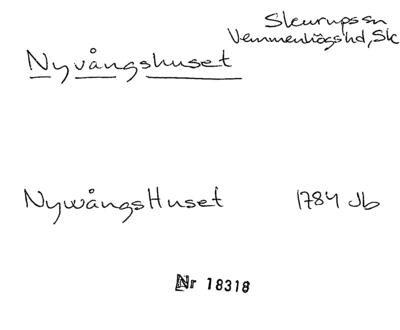 Skurupssn
Vemmenhögshd, Sk
Nyvångshuset
NywångsHuset 1784 Jb
Nr 18318